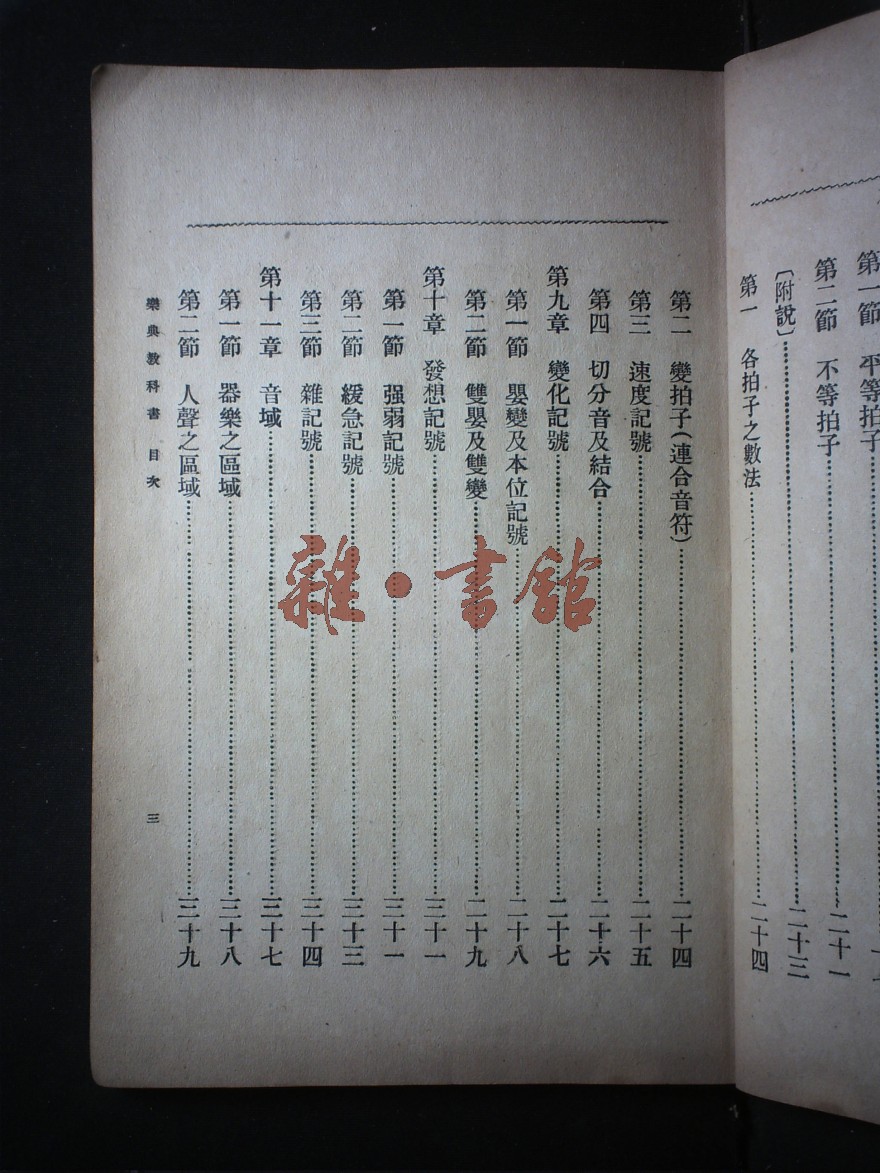 第一節 平等拍子
第二節 不等拍子 二十一
〔附説〕 二十三
第一 各拍子之數法 二十四
第二 變拍子(連合音符) 二十四
第三 速度記號 二十五
第四 切分音及結合 二十六
第九章 變化記號 二十七
第一節 嬰變及本位記號 二十八
第二節 雙嬰及雙變 二十九
第十章 發想記號 三十一
第一節 强弱記號 三十一
第二節 緩急記號 三十三
第三節 雜記號 三十四
第十一章 音域 三十七
第一節 器樂之區域 三十八
第二節 人聲之區域 三十九
樂典教科書 目次 三
雜·書館